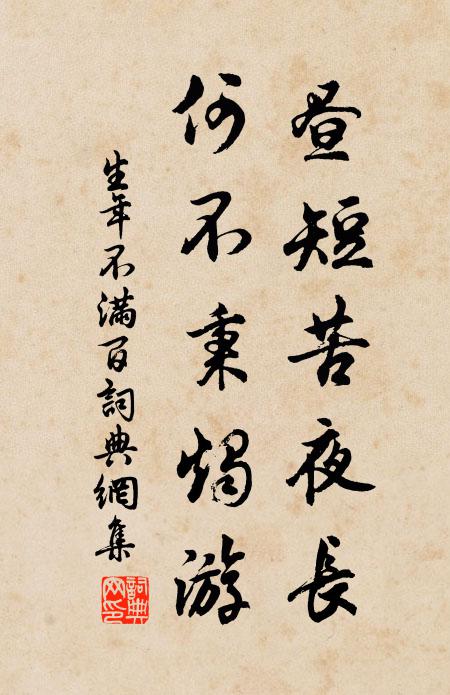 昼短苦夜長
何不秉燭游
生年不滿百詞典網集
詞典
網印